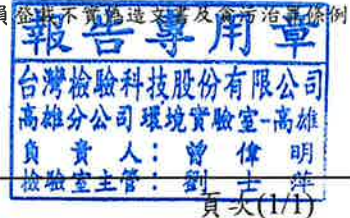 員登載不實偽造文書及貪污治罪條例
報告專用章
台灣檢驗科技股份有限公司
高雄分公司環境實驗室-高雄
負責人：曾偉明
檢驗室主管：劉士萍
頁次(1/1)